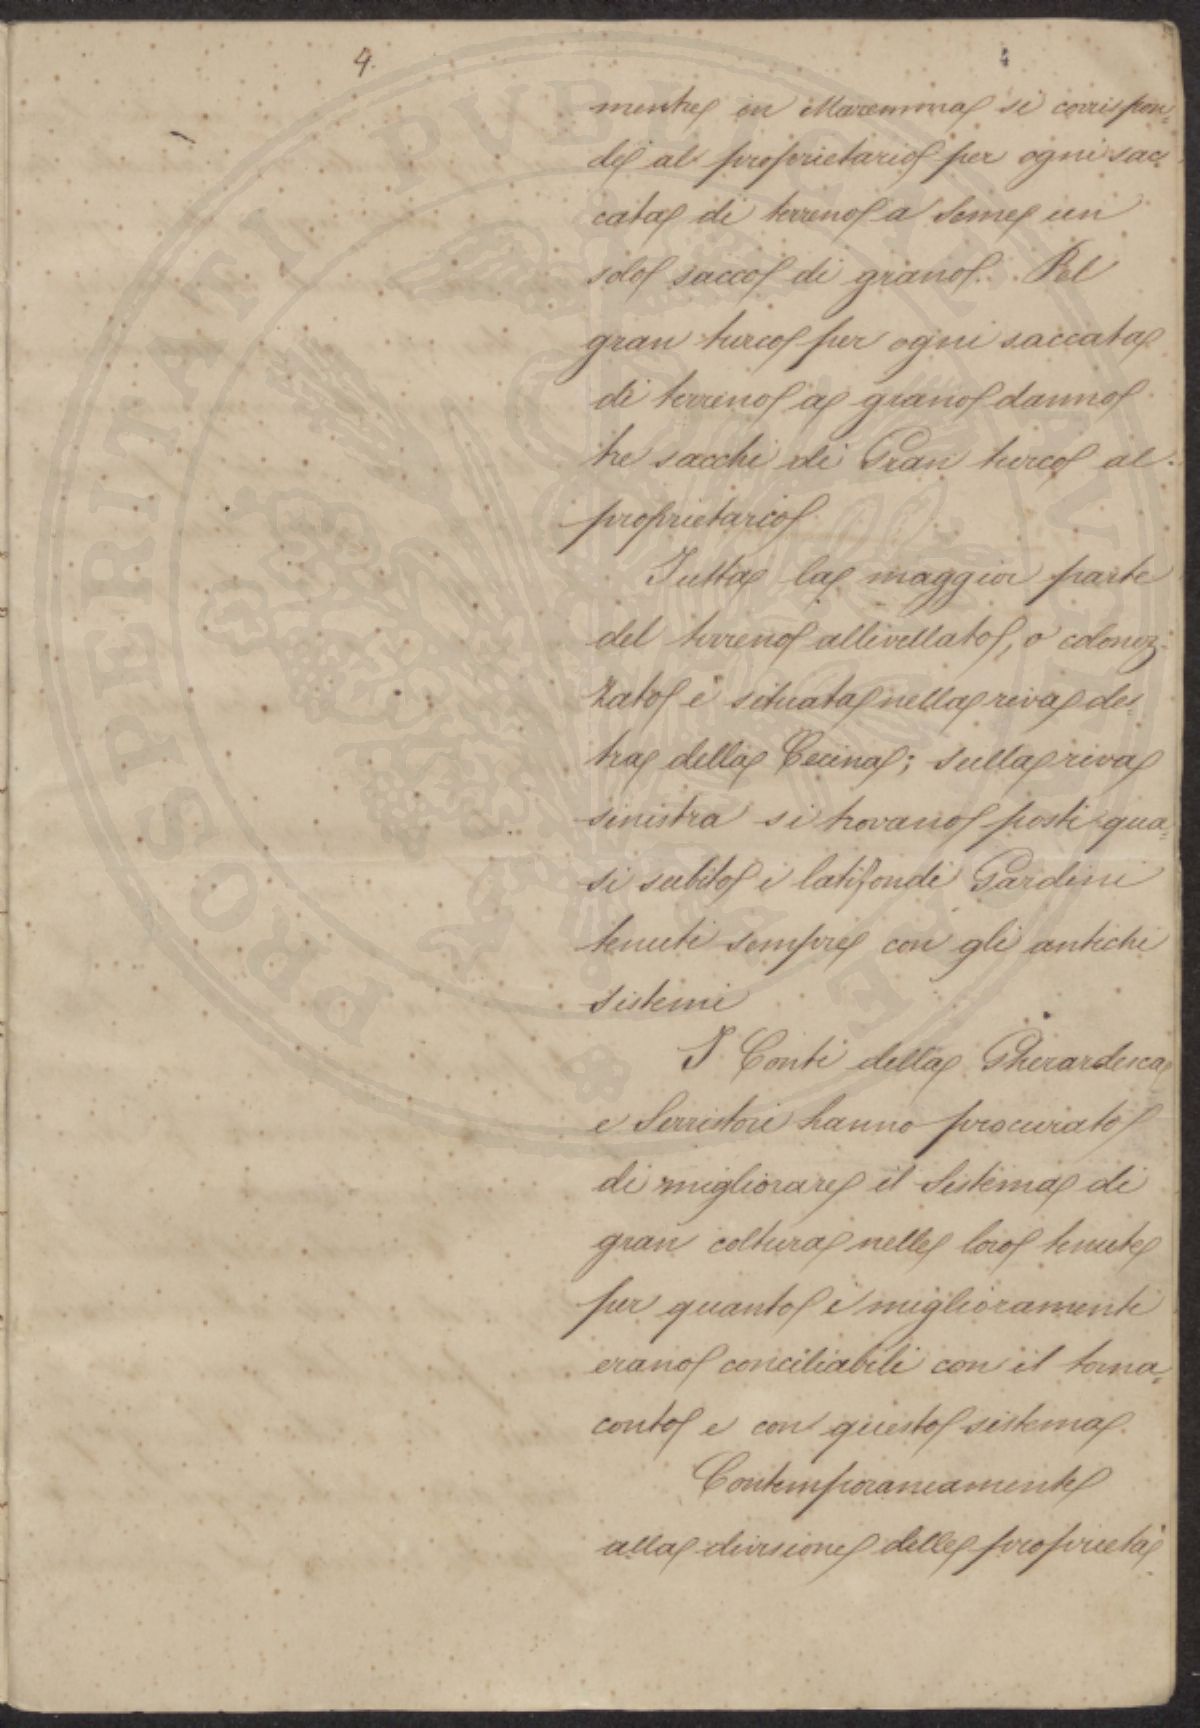 4.
4
mentre in Maremma si corrispon=
de al proprietario per ogni sac=
cata di terreno a seme un
solo sacco di grano. Pel
gran turco per ogni saccata
di terreno a grano danno
tre sacchi di Gran turco al
proprietario
Tutta la maggior parte
del terreno allivellato, o coloniz=
zato è situata nella riva des=
tra della Cecina; sulla riva
sinistra si trovano posti qua=
si subito i latifondi Gardini
tenuti sempre con gli antichi
sistemi
I Conti della Gherardesca
e Serristori hanno procurato
di migliorare il Sistema di
gran coltura nelle loro tenute
per quanto i miglioramenti
erano conciliabili con il torna=
conto e con questo sistema.
Contemporaneamente
alla divisione delle proprietà
PROSPERITATI PVBLICAE